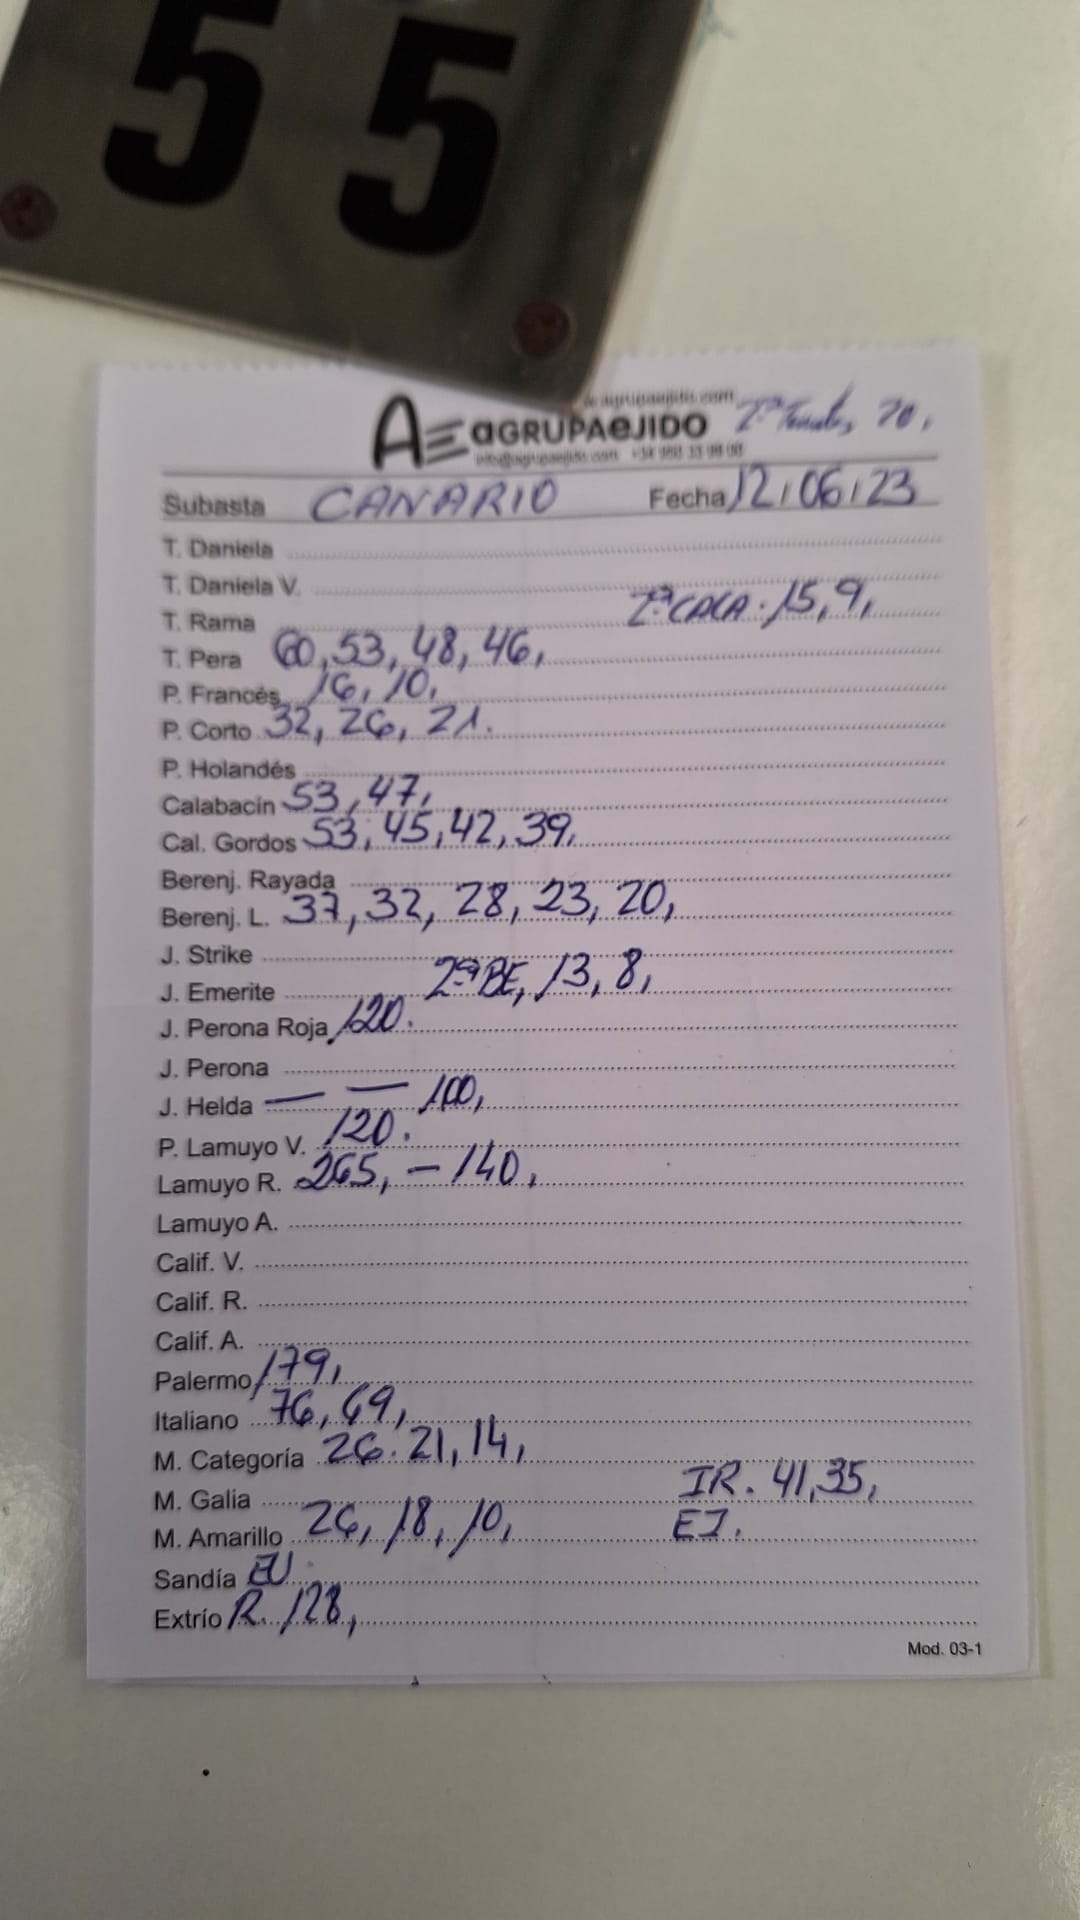 55
agrupaejido.com
AE aGRUPAeJIDO 2ª Tomate, 20,
info@agrupaejido.com +34 950 33 98 00
Subasta CANARIO Fecha 12/06/23
T. Daniela
T. Daniela V.
2ª CACA. 15, 9,
T. Rama
T. Pera 60, 53, 48, 46,
P. Francés 16, 10,
P. Corto 32, 26, 21.
P. Holandés
Calabacín 53, 47,
Cal. Gordos 53, 45, 42, 39,
Berenj. Rayada
Berenj. L. 37, 32, 28, 23, 20,
J. Strike
J. Emerite 2ª BE, 13, 8,
J. Perona Roja 120.
J. Perona
J. Helda — — 100,
P. Lamuyo V. 120.
Lamuyo R. 265, - 140,
Lamuyo A.
Calif. V.
Calif. R.
Calif. A.
Palermo 179,
Italiano 76, 69,
M. Categoría 26. 21, 14,
M. Galia IR. 41, 35,
M. Amarillo 26, 18, 10, EJ.
Sandía EU.
Extrío R. 128,
Mod. 03-1